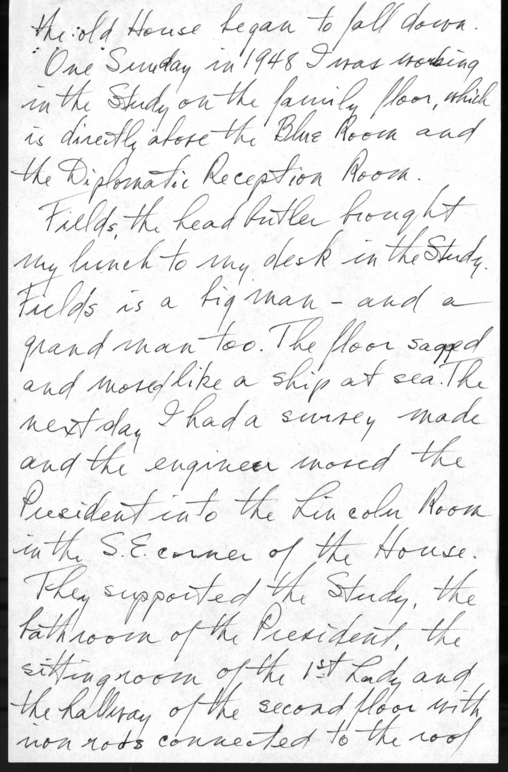 the old House began to fall down.
One Sunday in 1948 I was working
in the Study on the family floor, which
is directly above the Blue Room and
the Diplomatic Reception Room.
Fields, the head butler brought
my lunch to my desk in the Study.
Fields is a big man - and a
grand man too. The floor sagged
and moved like a ship at sea. The
next day I had a survey made
and the engineer moved the
President into the Lincoln Room
in the S.E. corner of the House.
They supported the Study, the
bathroom of the President, the
sitting room of the 1st Lady and
the hallway of the second floor with
iron rods connected to the roof